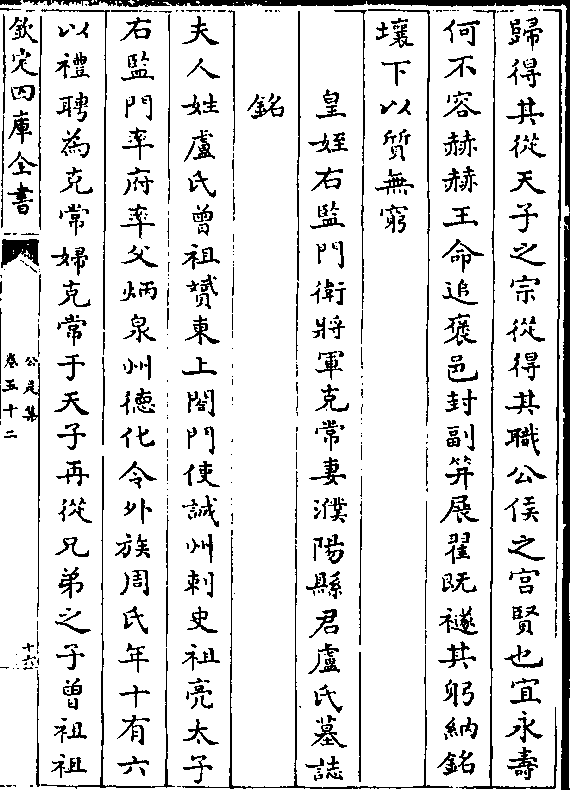 歸得其從天子之宗從得其職公侯之宫賢也宜永壽
何不容赫赫王命追褒邑封副笄展翟既襚其躬納銘
壤下以質無窮
皇姪右監門衛將軍克常妻濮陽縣君盧氏墓誌
銘
夫人姓盧氏曾祖贇東上閤門使誠州刺史祖亮太子
右監門率府率父炳泉州德化令外族周氏年十有六
以禮聘為克常婦克常于天子再從兄弟之子曾祖祖
欽定四庫全書
公是集
卷五十二
十六